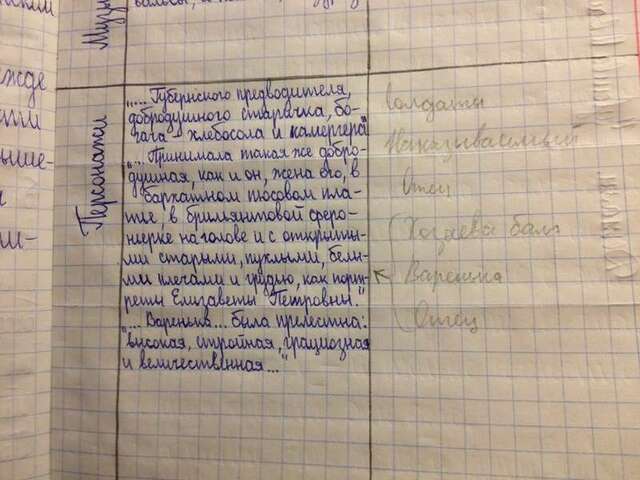 Музы
Персонажи
„... Губернского предводителя,
добродушного старичка, бо-
гача-хлебосола и камергера"
„...Принимала такая же добро-
душная, как и он, жена его, в
бархатном пюсовом пла-
тье, в бриллиантовой фэро-
ньерке на голове и с открыты-
ми старыми, пухлыми, белы-
ми плечами и грудью, как порт-
реты Елизаветы Петровны."
„... Варенька... была прелестна:
высокая, стройная, грациозная
и величественная..."
Солдаты
Наказываемый
Отец
Хозяева бала
Варенька
Отец
жде
ами
ыше-
и-